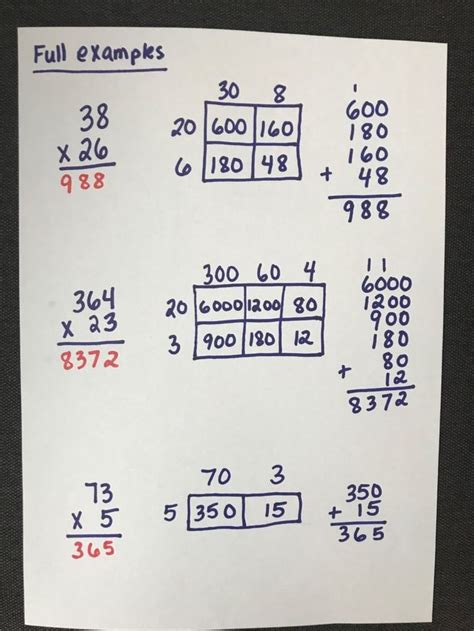 Full examples
30 8
38
x 26
988
20 600 160
6 180 48
1
600
180
160
+ 48
988
300 60 4
364
x 23
8372
20 6000 1200 80
3 900 180 12
11
6000
1200
900
180
80
+ 12
8372
70 3
73
x 5
365
5 350 15
350
+ 15
365